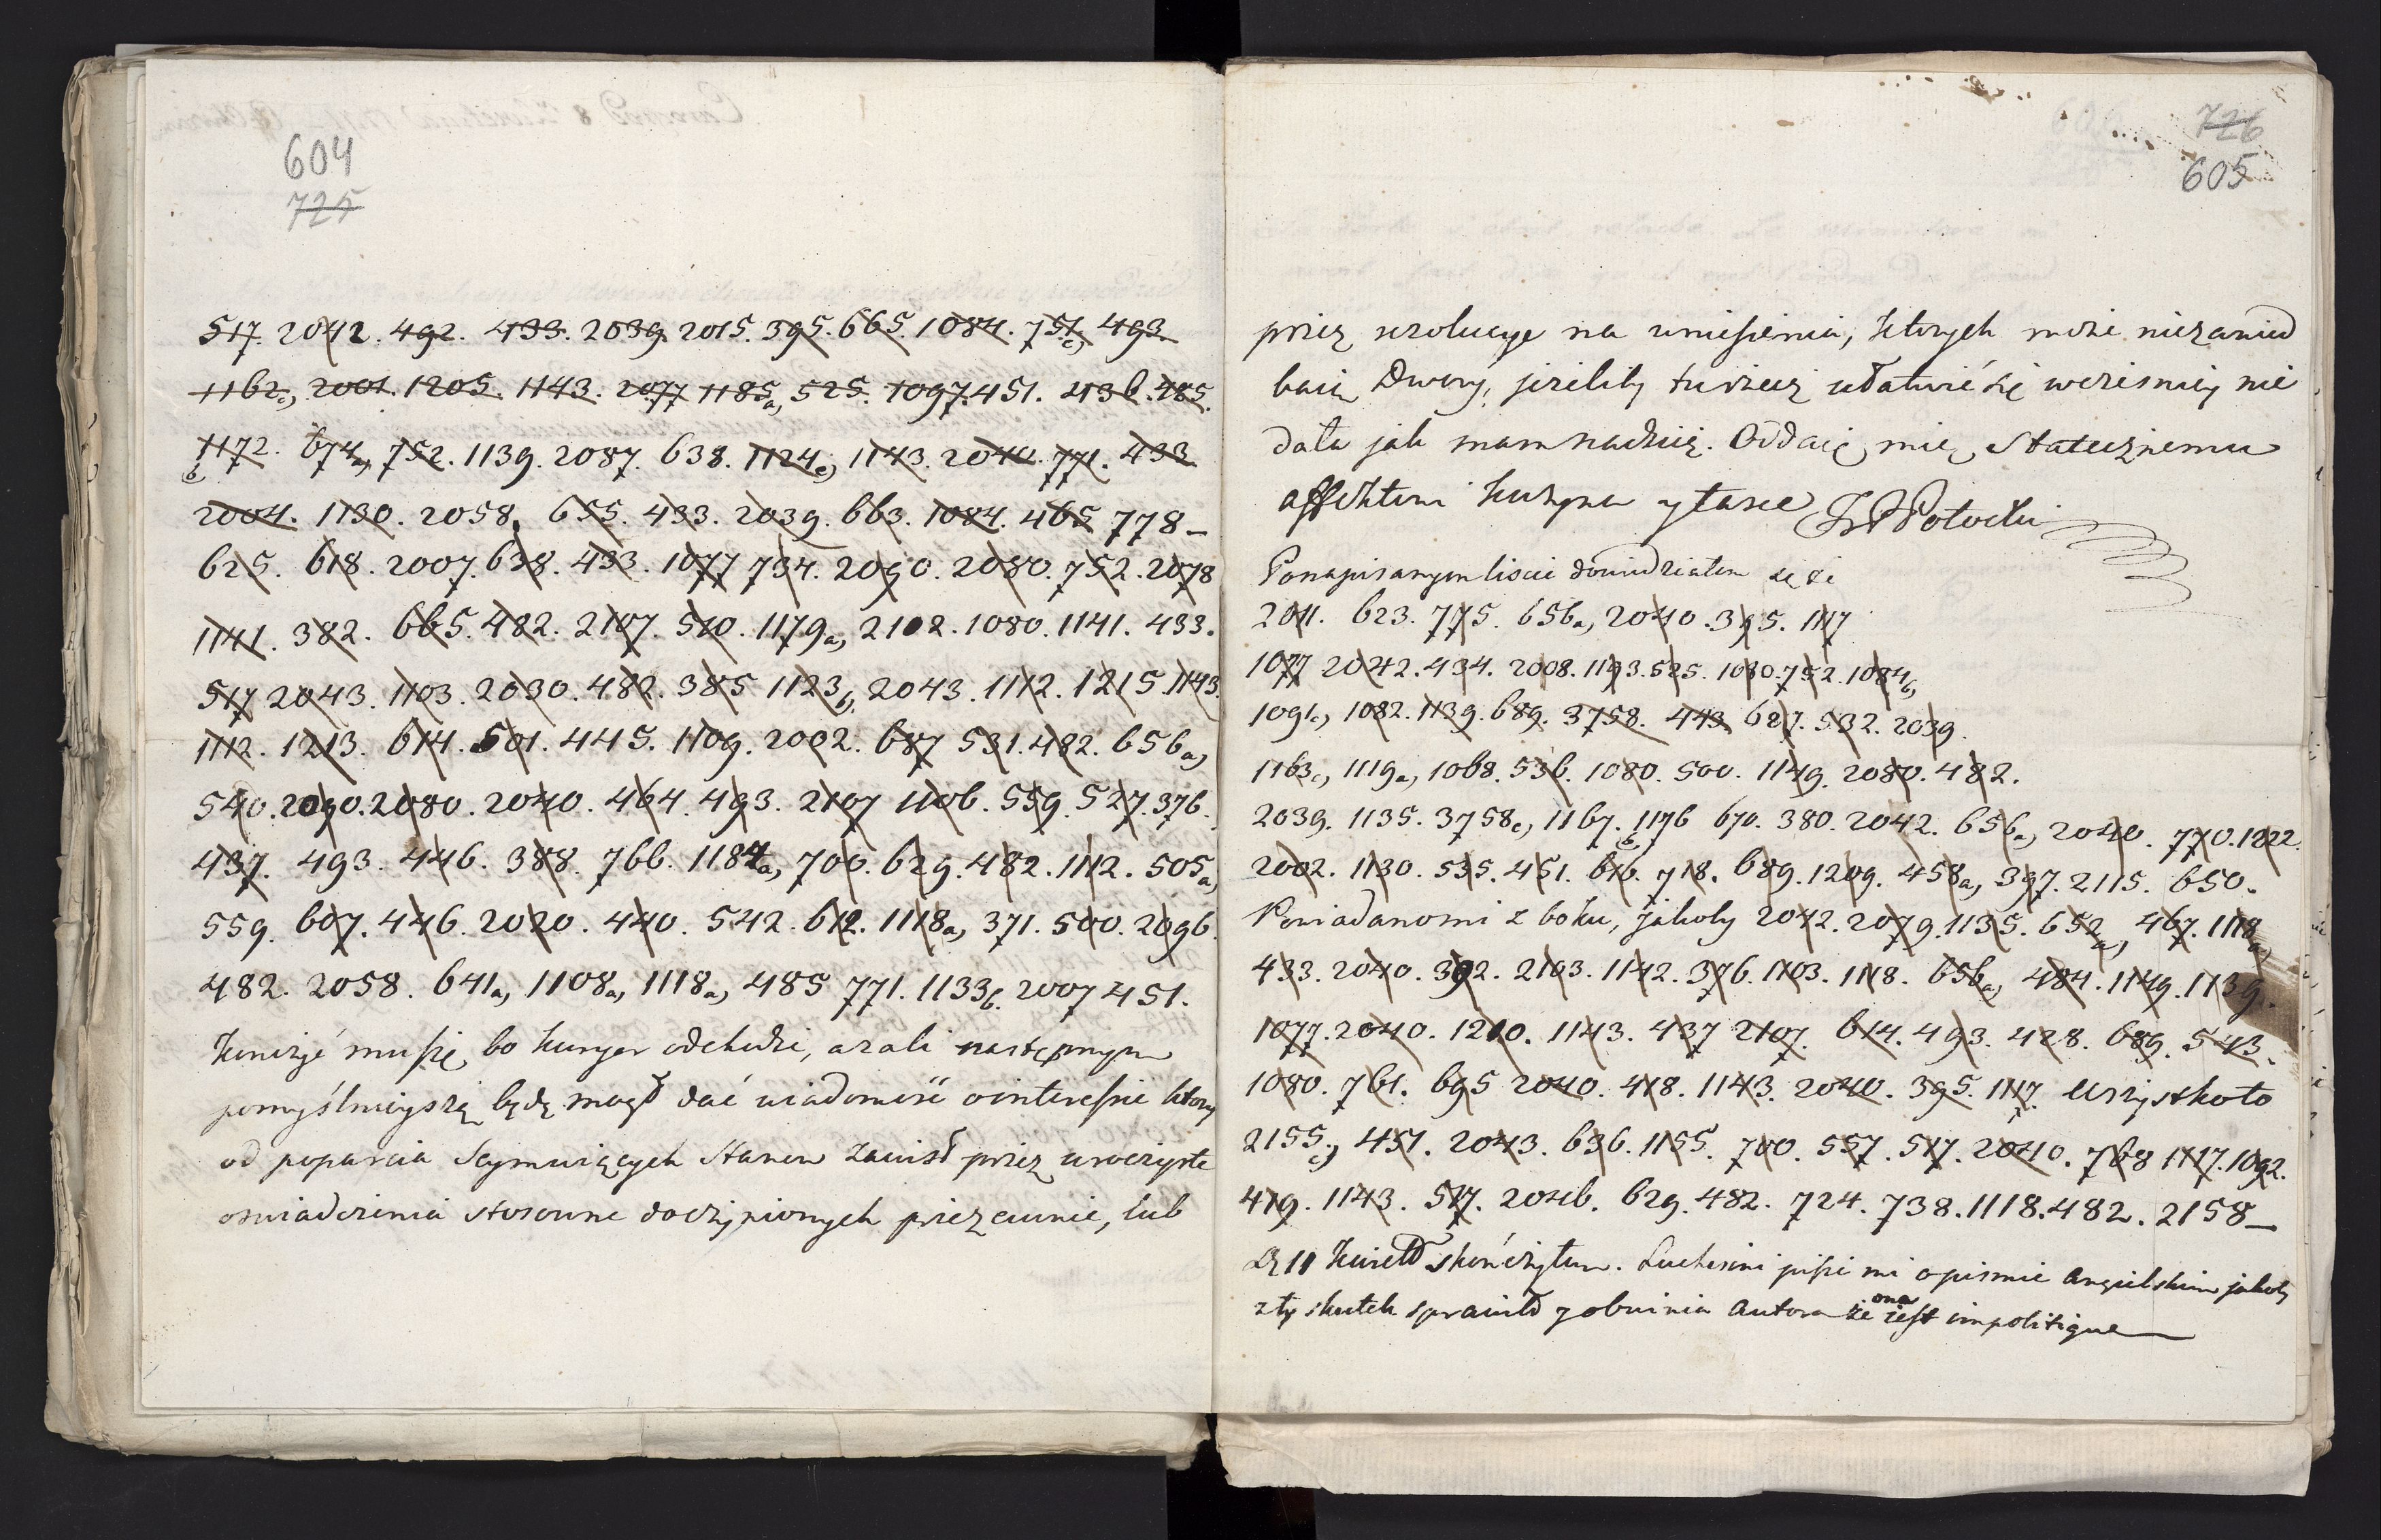 604
725
517. 2042. 492. 433. 2039. 2015. 395. 665. 1084. 751.c) 493.
1162c) 2001. 1205. 1143. 2077 1185a) 525. 1097. 451. 436. 485.
1172.b) 674a) 752. 1139. 2087. 638. 1124c) 1143. 2040. 771. 433
2004. 1130. 2058. 655. 433. 2039. 663. 1084. 465 778_
625. 618. 2007. 638. 433. 1077 734. 2090. 2080. 752. 2078
1141. 382. 665. 482. 2107. 510. 1179a) 2102. 1080. 1141. 433.
517 2043. 1103. 2030. 482. 385 1123b) 2043. 1112. 1215 1143.
1112. 1213. 614. 501. 445. 1109. 2002. 687 531. 482. 656a)
540. 2090. 2080. 2040. 464. 493. 2107 1106. 559. 527. 376.
437. 493. 446. 388. 766. 1184a) 700. 629. 482. 1112. 505a)
559. 607. 446. 2020. 440. 542. 612. 1118a) 371. 500. 2096.
482. 2058. 641a) 1108a) 1118a) 485 771. 1133b. 2007 451.
kończyć muszę, bo kuryer odchodzi, azali następnym
pomyślnieyszą będę mógł dać wiadomość o interessie który
od poparcia Seymuiących Stanow zawisł przez uroczyste
oswiadczenia stosowne do czynionych przezemnie, lub
726
605
przez rezolucye na wniesienia, ktorych może niezanied
baią Dwory, jeżeliby tu rzecz ułatwić się wcześniey nie
dała jak mam nadzieię. Oddaię mię statecznemu
affektowi kuzyna y łasce Potocki
Po napisanym liscie dowiedziałem się że
2011. 623. 775. 656a) 2040. 395. 1117
1077 2042. 434. 2008. 1193. 525. 1080. 752. 1084b)
1091c) 1082. 1139. 689. 3758. 443 627. 532. 2039.
1163c) 1119a) 1068. 536. 1080. 500. 1149. 2080. 482.
2039. 1135. 3758c) 1167. 1176b) 670. 380. 2042. 656a) 2040. 770. 1222.
2002. 1130. 535. 451. 616. 718. 689. 1209. 458a) 397. 2115. 650.
Powiadano mi z boku, jakoby 2042. 2079. 1135. 652a) 467. 1118a)
433. 2040. 392. 2103. 1142. 376. 1103. 1118. 656a) 484. 1149. 1139.
1077. 2040. 1210. 1143. 437 2107. 614. 493. 428. 689. 543.
1080. 761. 695 2040. 418. 1143. 2040. 395. 1117. Wszystko to
2155c) 451. 2043. 636. 1155. 700. 557. 517. 2040. 768 1117. 1092.
419. 1143. 517. 2046. 629. 482. 724. 738. 1118. 482. 2158_
D 11 Kwiet. skończyłem. Lucchesini pisze mi o pismie Angielskim jakoby
zły skutek sprawiło y obwinia Autora że ona jest impolitique